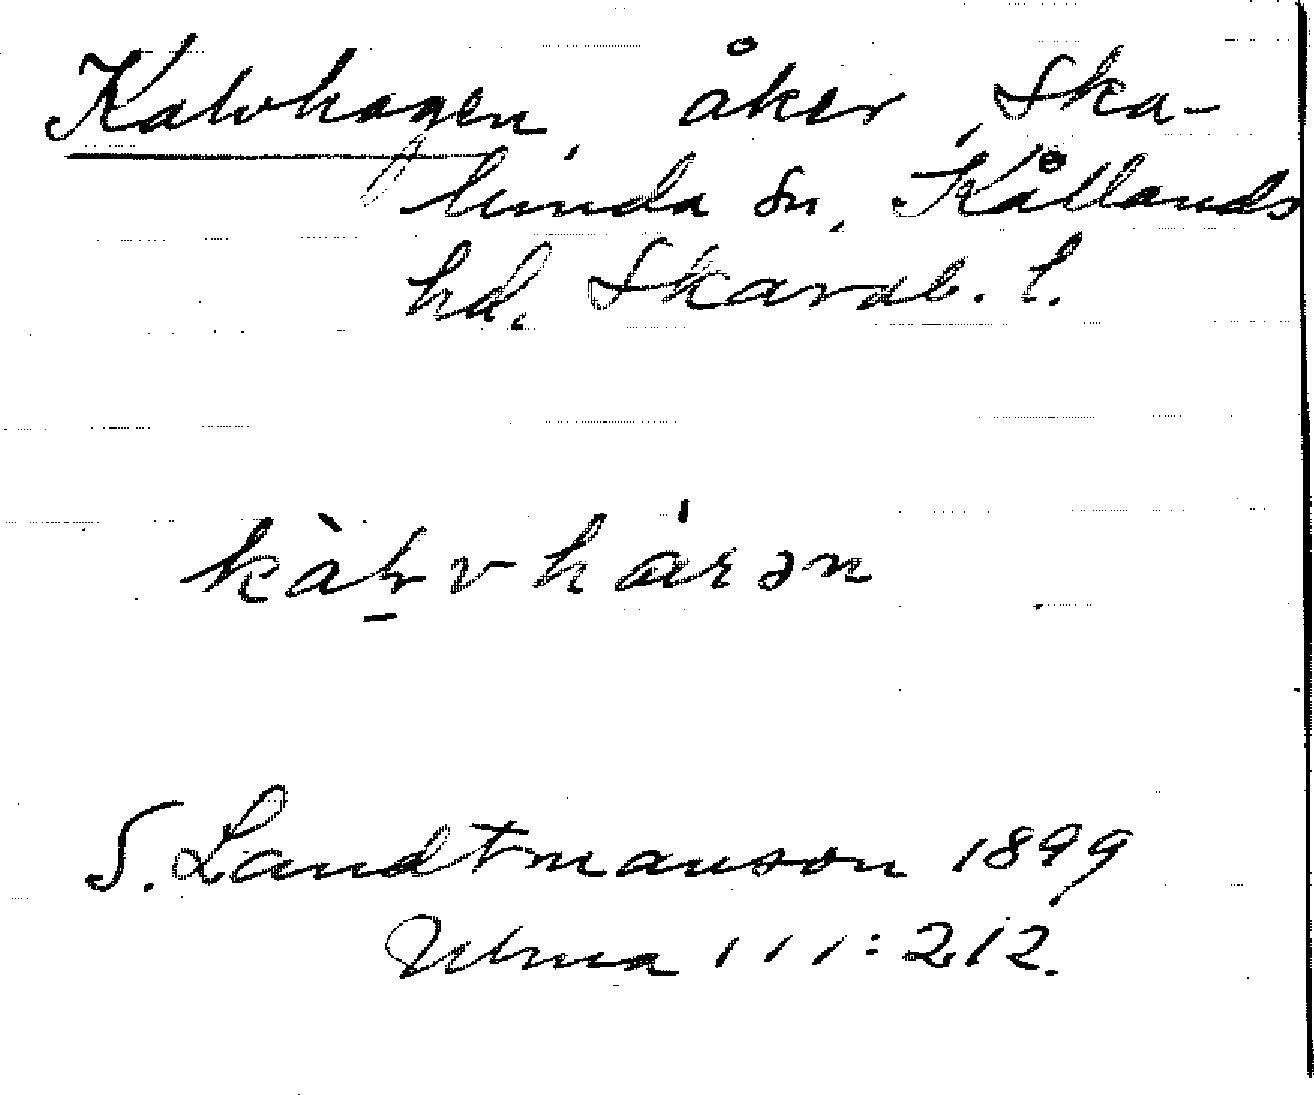 Kalvhagen, åker, Ska-
lunda sn, Kållands
hd. Skarab. l.
kàḷvhárən
S. Landtmanson 1899
Ulma 111:212.